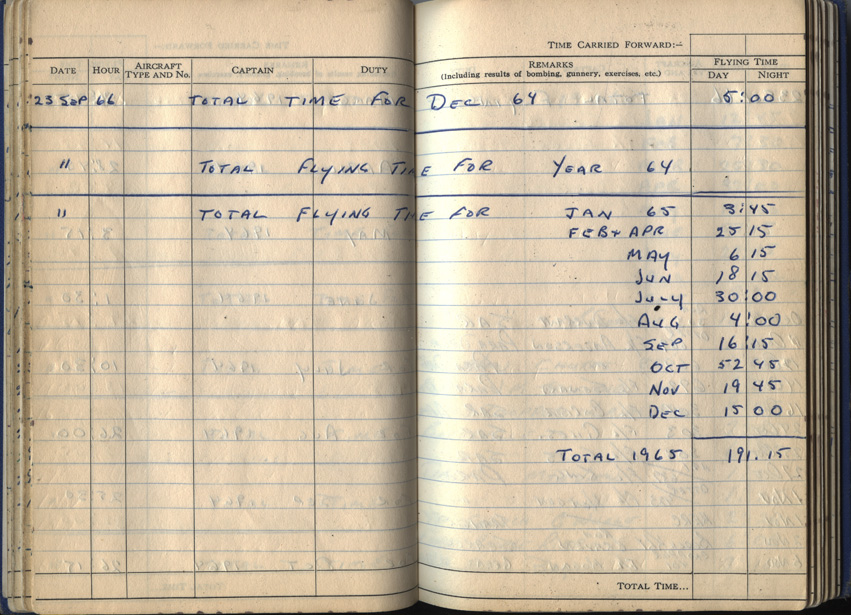 TIME CARRIED FORWARD:—
DATE HOUR AIRCRAFT TYPE AND No. CAPTAIN DUTY REMARKS (Including results of bombing, gunnery, exercises, etc.) FLYING TIME DAY NIGHT
23 SEP 66 TOTAL TIME FOR DEC 64 5:00
" TOTAL FLYING TIME FOR YEAR 64
" TOTAL FLYING TIME FOR JAN 65 3:45
FEB+ APR 25 15
MAY 6 15
JUN 18 15
JULY 30:00
AUG 4:00
SEP 16:15
OCT 52 45
NOV 19 45
DEC 15 00
TOTAL 1965 191.15
TOTAL TIME...